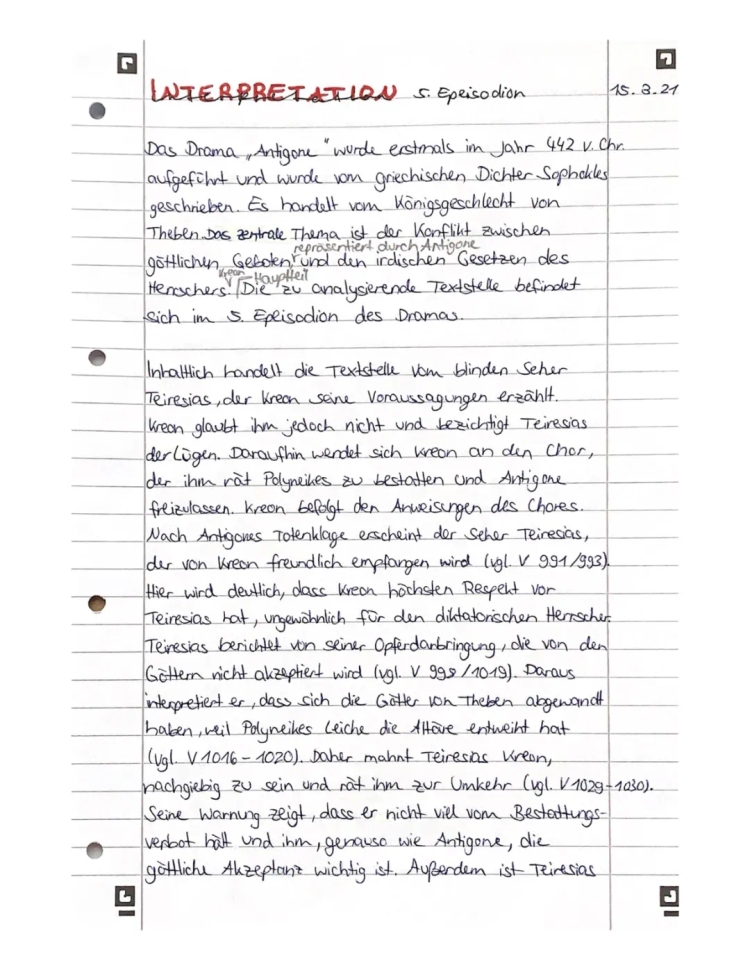 INTERPRETATION 5. Epeisodion 15.3.21
Das Drama „Antigone" wurde erstmals im Jahr 442 v. Chr.
aufgeführt und wurde vom griechischen Dichter Sophokles
geschrieben. Es handelt vom Königsgeschlecht von
Theben. Das zentrale Thema ist der Konflikt zwischen
repräsentiert durch Antigone
göttlichen Geboten, und den irdischen Gesetzen des
Kreon Hauptteil
Herrschers. Die zu analysierende Textstelle befindet
sich im 5. Epeisodion des Dramas.
Inhaltlich handelt die Textstelle vom blinden Seher
Teiresias, der Kreon seine Voraussagungen erzählt.
Kreon glaubt ihm jedoch nicht und bezichtigt Teiresias
der Lügen. Daraufhin wendet sich Kreon an den Chor,
der ihm rät Polyneikes zu bestatten und Antigone
freizulassen. Kreon befolgt den Anweisungen des Chores.
Nach Antigones Totenklage erscheint der Seher Teiresias,
der von Kreon freundlich empfangen wird (vgl. V 991/993).
Hier wird deutlich, dass Kreon höchsten Respekt vor
Teiresias hat, ungewöhnlich für den diktatorischen Herrscher.
Teiresias berichtet von seiner Opferdarbringung, die von den
Göttern nicht akzeptiert wird (vgl. V 998/1019). Daraus
interpretiert er, dass sich die Götter von Theben abgewandt
haben, weil Polyneikes Leiche die Altäre entweiht hat
(vgl. V 1016-1020). Daher mahnt Teiresias Kreon,
nachgiebig zu sein und rät ihm zur Umkehr (vgl. V 1029-1030).
Seine Warnung zeigt, dass er nicht viel vom Bestattungs-
verbot hält und ihm, genauso wie Antigone, die
göttliche Akzeptanz wichtig ist. Außerdem ist Teiresias